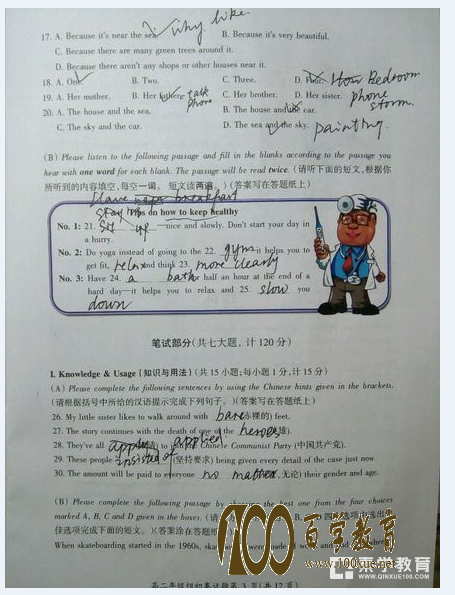 why like
17. A. Because it's near the sea. B. Because it's very beautiful.
C. Because there are many green trees around it.
D. Because there aren't any shops or other houses near it.
18. A. One B. Two. C. Three. D. How Bedroom
19. A. Her mother. B. Her talk C. Her brother. D. Her sister. phone
phone storm.
20. A. The house and the sea. B. The house and car.
C. The sky and the car. D. The sea and the sky. painting.
(B) Please listen to the following passage and fill in the blanks according to the passage you
hear with one word for each blank. The passage will be read twice. (请听下面的短文,根据你
所听到的内容填空,每空一词。短文读两遍。)(答案写在答题纸上)
Have breakfast
stay Tips on how to keep healthy
No. 1: 21. up —nice and slowly. Don't start your day in
a hurry.
No. 2: Do yoga instead of going to the 22. gym it helps you to
get fit, relax and think 23. more clearly
No. 3: Have 24. a bath half an hour at the end of a
hard day—it helps you to relax and 25. slow you
down
笔试部分(共七大题,计120分)
I. Knowledge & Usage (知识与用法)(共15小题;每小题1分,计15分)
(A) Please complete the following sentences by using the Chinese hints given in the brackets.
(请根据括号中所给的汉语提示完成下列句子。)(答案写在答题纸上)
26. My little sister likes to walk around with bare (赤裸的) feet.
27. The story continues with the death of one of the heroes
28. They've all applied to join the Chinese Communist Party (中国共产党).
29. These people insisted of (坚持要求) being given every detail of the case just now.
30. The amount will be paid to everyone no matter (无论) their gender and age.
(B) Please complete the following passage by choosing the best one from the four choices
marked A, B, C and D given in the boxes.
佳选项完成下面的短文。)(答案涂在答题
When skateboarding started in the 1960s, were made of wood and had
100百学教育
www.100xue.net
秦学教育
WWW.QINXUE100.COM
高二年级组初赛试题第3页(共12页)